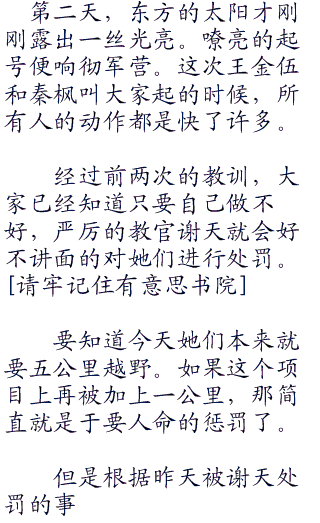 第二天，东方的太阳才刚
刚露出一丝光亮。嘹亮的起
号便响彻军营。这次王金伍
和秦枫叫大家起的时候，所
有人的动作都是快了许多。
经过前两次的教训，大
家已经知道只要自己做不
好，严厉的教官谢天就会好
不讲面的对她们进行处罚。
[请牢记住有意思书院]
要知道今天她们本来就
要五公里越野。如果这个项
目上再被加上一公里，那简
直就是于要人命的惩罚了。
但是根据昨天被谢天处
罚的事